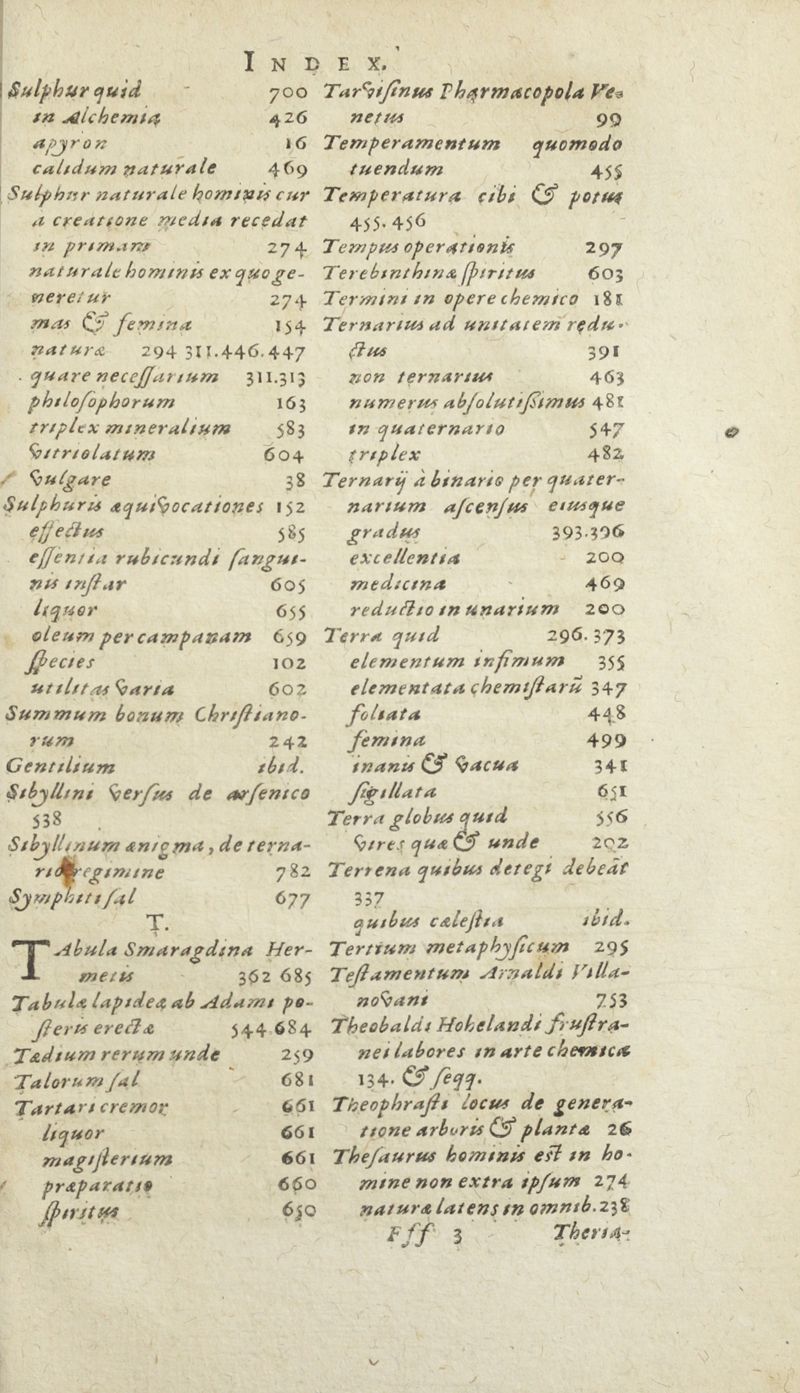 INDEX.
Sulphur quid 700
in Alchemia 426
apyron 16
calidum naturale 469
Sulphur naturale hominis cur
a creatione media recedat
in primam 274
naturale hominis ex quo ge-
neretur 274
mas & femina 154
naturæ 294 311.446.447
quare necessarium 311.313
philosophorum 163
triplex mineralium 583
vitriolatum 604
vulgare 38
Sulphuris æquivocationes 152
effectus 585
essentia rubicundi sangui-
nis instar 605
liquor 655
oleum per campanam 659
species 102
utilitas varia 602
Summum bonum Christiano-
rum 242
Gentilium ibid.
Sibyllini versus de arsenico
538
Sibyllinum ænigma, de terna-
rio regimine 782
Symphiti sal 677
T.
TAbula Smaragdina Her-
metis 362 685
Tabulæ lapideæ ab Adami po-
steris erectæ 544.684
Tædium rerum unde 259
Talorum sal 681
Tartari cremor 661
liquor 661
magisterium 661
præparatio 660
spiritus 650
Tarvisinus Pharmacopola Ve-
netus 99
Temperamentum quomodo
tuendum 455
Temperatura cibi & potus
455.456
Tempus operationis 297
Terebinthinæ spiritus 603
Termini in opere chemico 181
Ternarius ad unitatem redu-
ctus 391
non ternarius 463
numerus absolutissimus 481
in quaternario 547
triplex 482
Ternarij à binario per quater-
narium ascensus eiusque
gradus 393.396
excellentia 200
medicina 469
reductio in unarium 200
Terra quid 296.373
elementum infimum 355
elementata chemistarū 347
foliata 448
femina 499
inanis & vacua 341
sigillata 651
Terra globus quid 556
vires quæ & unde 202
Terrena quibus detegi debeāt
337
quibus cælestia ibid.
Tertium metaphysicum 295
Testamentum Arnaldi Villa-
novani 753
Theobaldi Hohelandi frustra-
nei labores in arte chemica
134. & seqq.
Theophrasti locus de genera-
tione arboris & plantæ 26
Thesaurus hominis est in ho-
mine non extra ipsum 274
naturæ latens in omnib. 238
Fff 3 Theria-